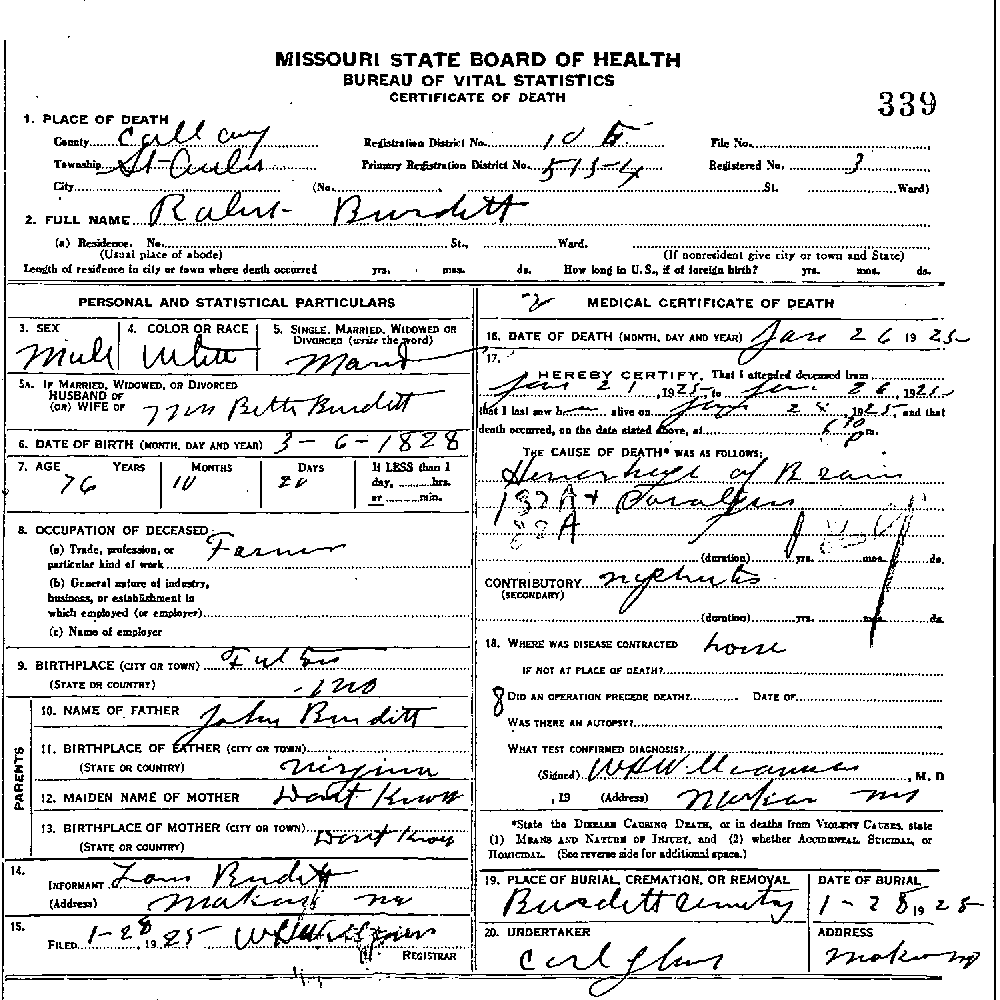 MISSOURI STATE BOARD OF HEALTH
BUREAU OF VITAL STATISTICS
CERTIFICATE OF DEATH
339
1. PLACE OF DEATH
County Callaway Registration District No. 105 File No.
Township Primary Registration District No. 513-4 Registered No. 3
City (No. St. Ward)
2. FULL NAME Robert Burditt
(a) Residence. No. St., Ward.
(Usual place of abode) (If nonresident give city or town and State)
Length of residence in city or town where death occurred yrs. mos. ds. How long in U.S., if of foreign birth? yrs. mos. ds.
PERSONAL AND STATISTICAL PARTICULARS
3. SEX 4. COLOR OR RACE 5. SINGLE, MARRIED, WIDOWED OR DIVORCED (write the word)
Male White Married
5A. IF MARRIED, WIDOWED, OR DIVORCED
HUSBAND OF
(OR) WIFE OF Mrs Bettie Burditt
6. DATE OF BIRTH (MONTH, DAY AND YEAR) 3-6-1828
7. AGE YEARS MONTHS DAYS If LESS than 1
day, hrs.
or min.
76 10 20
8. OCCUPATION OF DECEASED
(a) Trade, profession, or
particular kind of work Farmer
(b) General nature of industry,
business, or establishment in
which employed (or employer)
(c) Name of employer
9. BIRTHPLACE (CITY OR TOWN) Fulton
(STATE OR COUNTRY) Mo
PARENTS
10. NAME OF FATHER John Burditt
11. BIRTHPLACE OF FATHER (CITY OR TOWN)
(STATE OR COUNTRY) Virginia
12. MAIDEN NAME OF MOTHER Dont Know
13. BIRTHPLACE OF MOTHER (CITY OR TOWN)
(STATE OR COUNTRY) Dont Know
14.
INFORMANT Burditt
(Address) Mokane Mo
15.
FILED 1-28, 1925
REGISTRAR
2 MEDICAL CERTIFICATE OF DEATH
16. DATE OF DEATH (MONTH, DAY AND YEAR) Jan 26 1925
17.
I HEREBY CERTIFY, That I attended deceased from
Jan 21, 1925, to Jan 26, 1925
that I last saw h alive on Jan 24, 1925 and that
death occurred, on the date stated above, at 6 30 P m.
THE CAUSE OF DEATH* WAS AS FOLLOWS:
Hemorhage of Brain
+ Paralysis
(duration) yrs. mos. ds.
CONTRIBUTORY nephritis
(SECONDARY)
(duration) yrs. mos. ds.
18. WHERE WAS DISEASE CONTRACTED home
IF NOT AT PLACE OF DEATH?
8 DID AN OPERATION PRECEDE DEATH? DATE OF
WAS THERE AN AUTOPSY?
WHAT TEST CONFIRMED DIAGNOSIS?
(Signed) , M. D
, 19 (Address) Mokane Mo
*State the DISEASE CAUSING DEATH, or in deaths from VIOLENT CAUSES, state
(1) MEANS AND NATURE OF INJURY, and (2) whether ACCIDENTAL, SUICIDAL, or
HOMICIDAL. (See reverse side for additional space.)
19. PLACE OF BURIAL, CREMATION, OR REMOVAL DATE OF BURIAL
Burditt Cemetery 1-28 1925
20. UNDERTAKER ADDRESS
Carl Mokane Mo